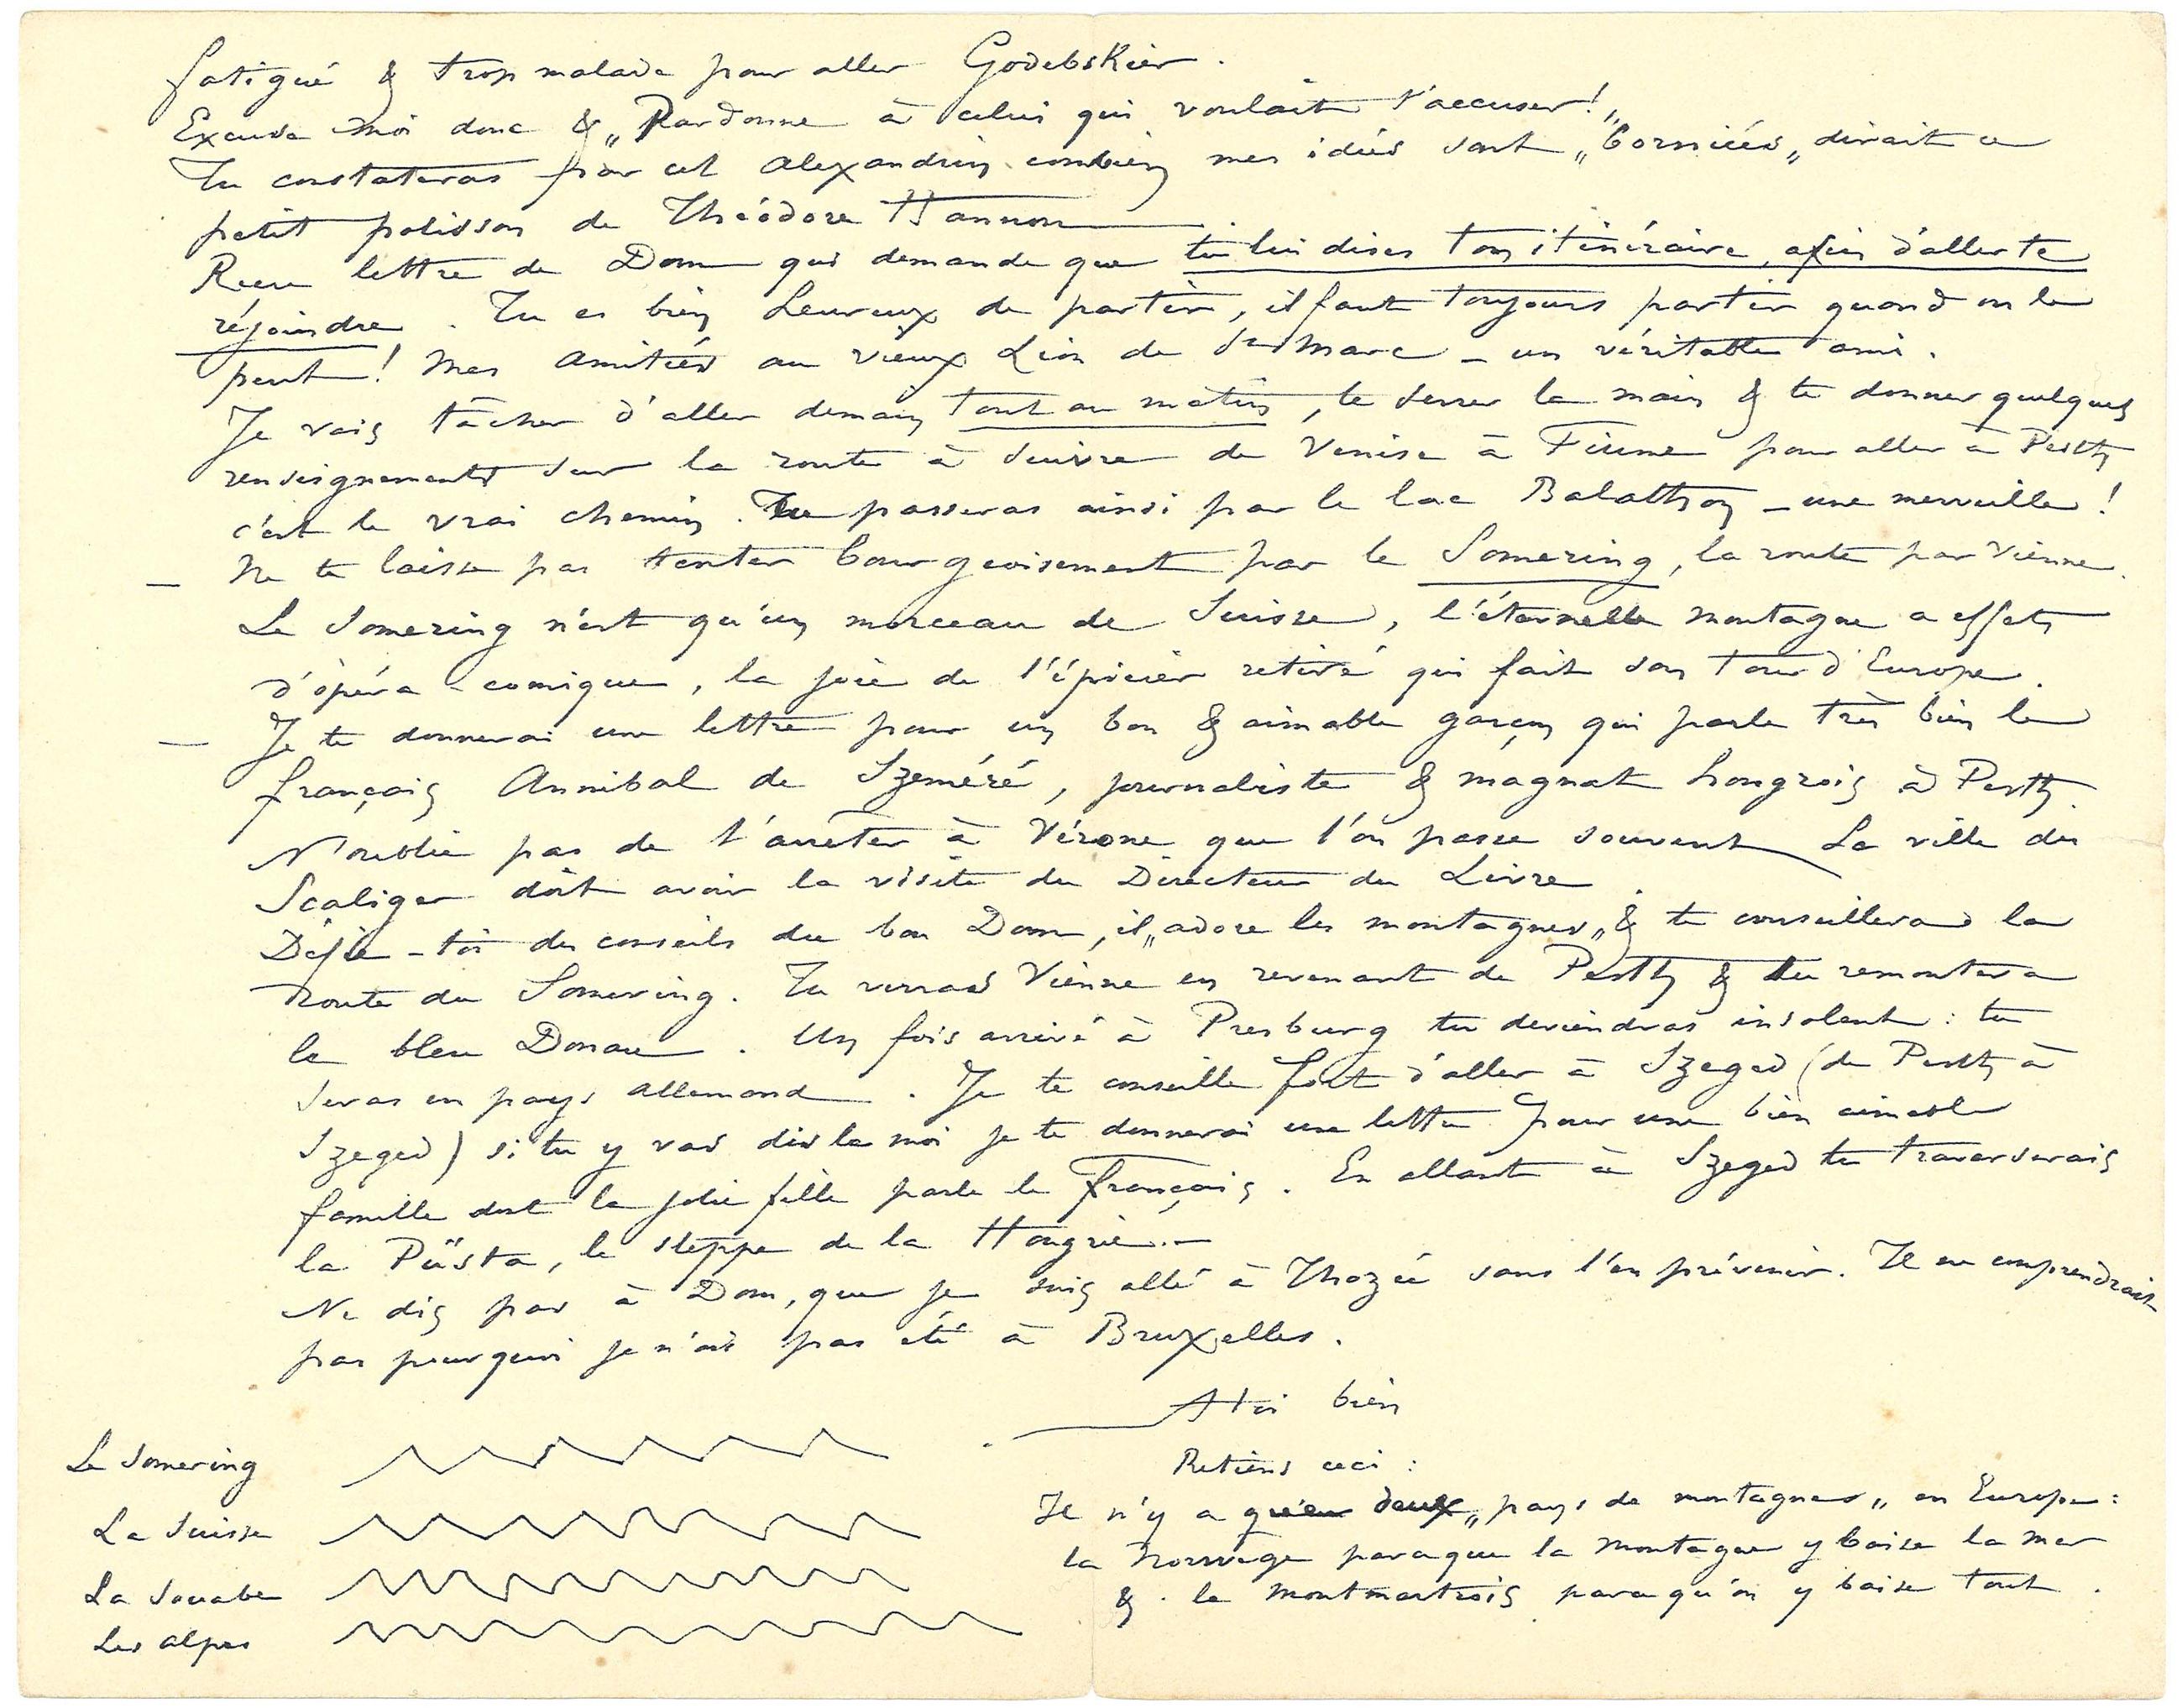 fatigué & trop malade pour aller Godebskier.
Excuse moi donc & „Pardonne à celui qui voulait s'accuser!„
Tu constateras par cet alexandrin combien mes idées sont „borniées„ dirait ce
petit polisson de Théodore Hannon.
Reçu lettre de Dom qui demande que tu lui dises ton itinéraire, afin d'aller te
rejoindre. Tu es bien heureux de partir, il faut toujours partir quand on le
peut! Mes amitiés au vieux Lion de St Marc – un véritable ami.
Je vais tâcher d'aller demain tout au matin, te serrer la main & te donner quelques
renseignements sur la route à suivre de Venise à Fiume pour aller à Pesth
c'est le vrai chemin. Tu passeras ainsi par le lac Balathon – une merveille!
– Ne te laisse pas tenter bourgeoisement par le Somering, la route par Vienne.
Le Somering n'est qu'un morceau de Suisse, l'éternelle montagne a effets
d'opéra-comique, la joie de l'épicier retiré qui fait son tour d'Europe.
– Je te donnerai une lettre pour un bon & aimable garçon qui parle très bien le
français Annibal de Szeméré, journaliste & magnat hongrois à Pesth.
N'oublie pas de t'arrêter à Vérone que l'on passe souvent La ville des
Scaliger doit avoir la visite du Directeur du Livre.
Défie-toi des conseils du bon Dom, il „adore les montagnes„ & te conseillera la
route du Somering. Tu verras Vienne en revenant de Pesth & tu remontera
le bleu Donau. Un fois arrivé à Presburg tu deviendras insolent: tu
seras en pays allemand. Je te conseille fort d'aller à Szeged (de Pesth à
Szeged) si tu y vas dis le moi je te donnerai une lettre pour une bien aimable
famille dont la jolie fille parle le français. En allant à Szeged tu traverserais
la Püsta, le steppe de la Hongrie. –
Ne dis pas à Dom, que je suis allé à Thozée sans l'en prévenir. Il ne comprendrait
pas pourquoi je n'ai pas été à Bruxelles.
A toi bien
Le Somering
La Suisse
La Souabe
Les alpes
Retiens ceci:
Il n'y a que deux „pays de montagnes„ en Europe:
la Norwège parceque la montagne y baise la mer
& le Montmartrois parcequ'on y baise tout.